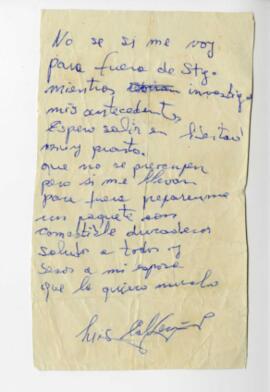 No se si me voy
para fuera de Stg.
mientras investiga
mis antecedentes
Espero salir en libertad
muy pronto.
que no se preocupen
pero si me llevan
para fuera prepararme
un paquete con
comestible duraderos
saludos a todos y
besos a mi esposa
que la quiero mucho
Luis